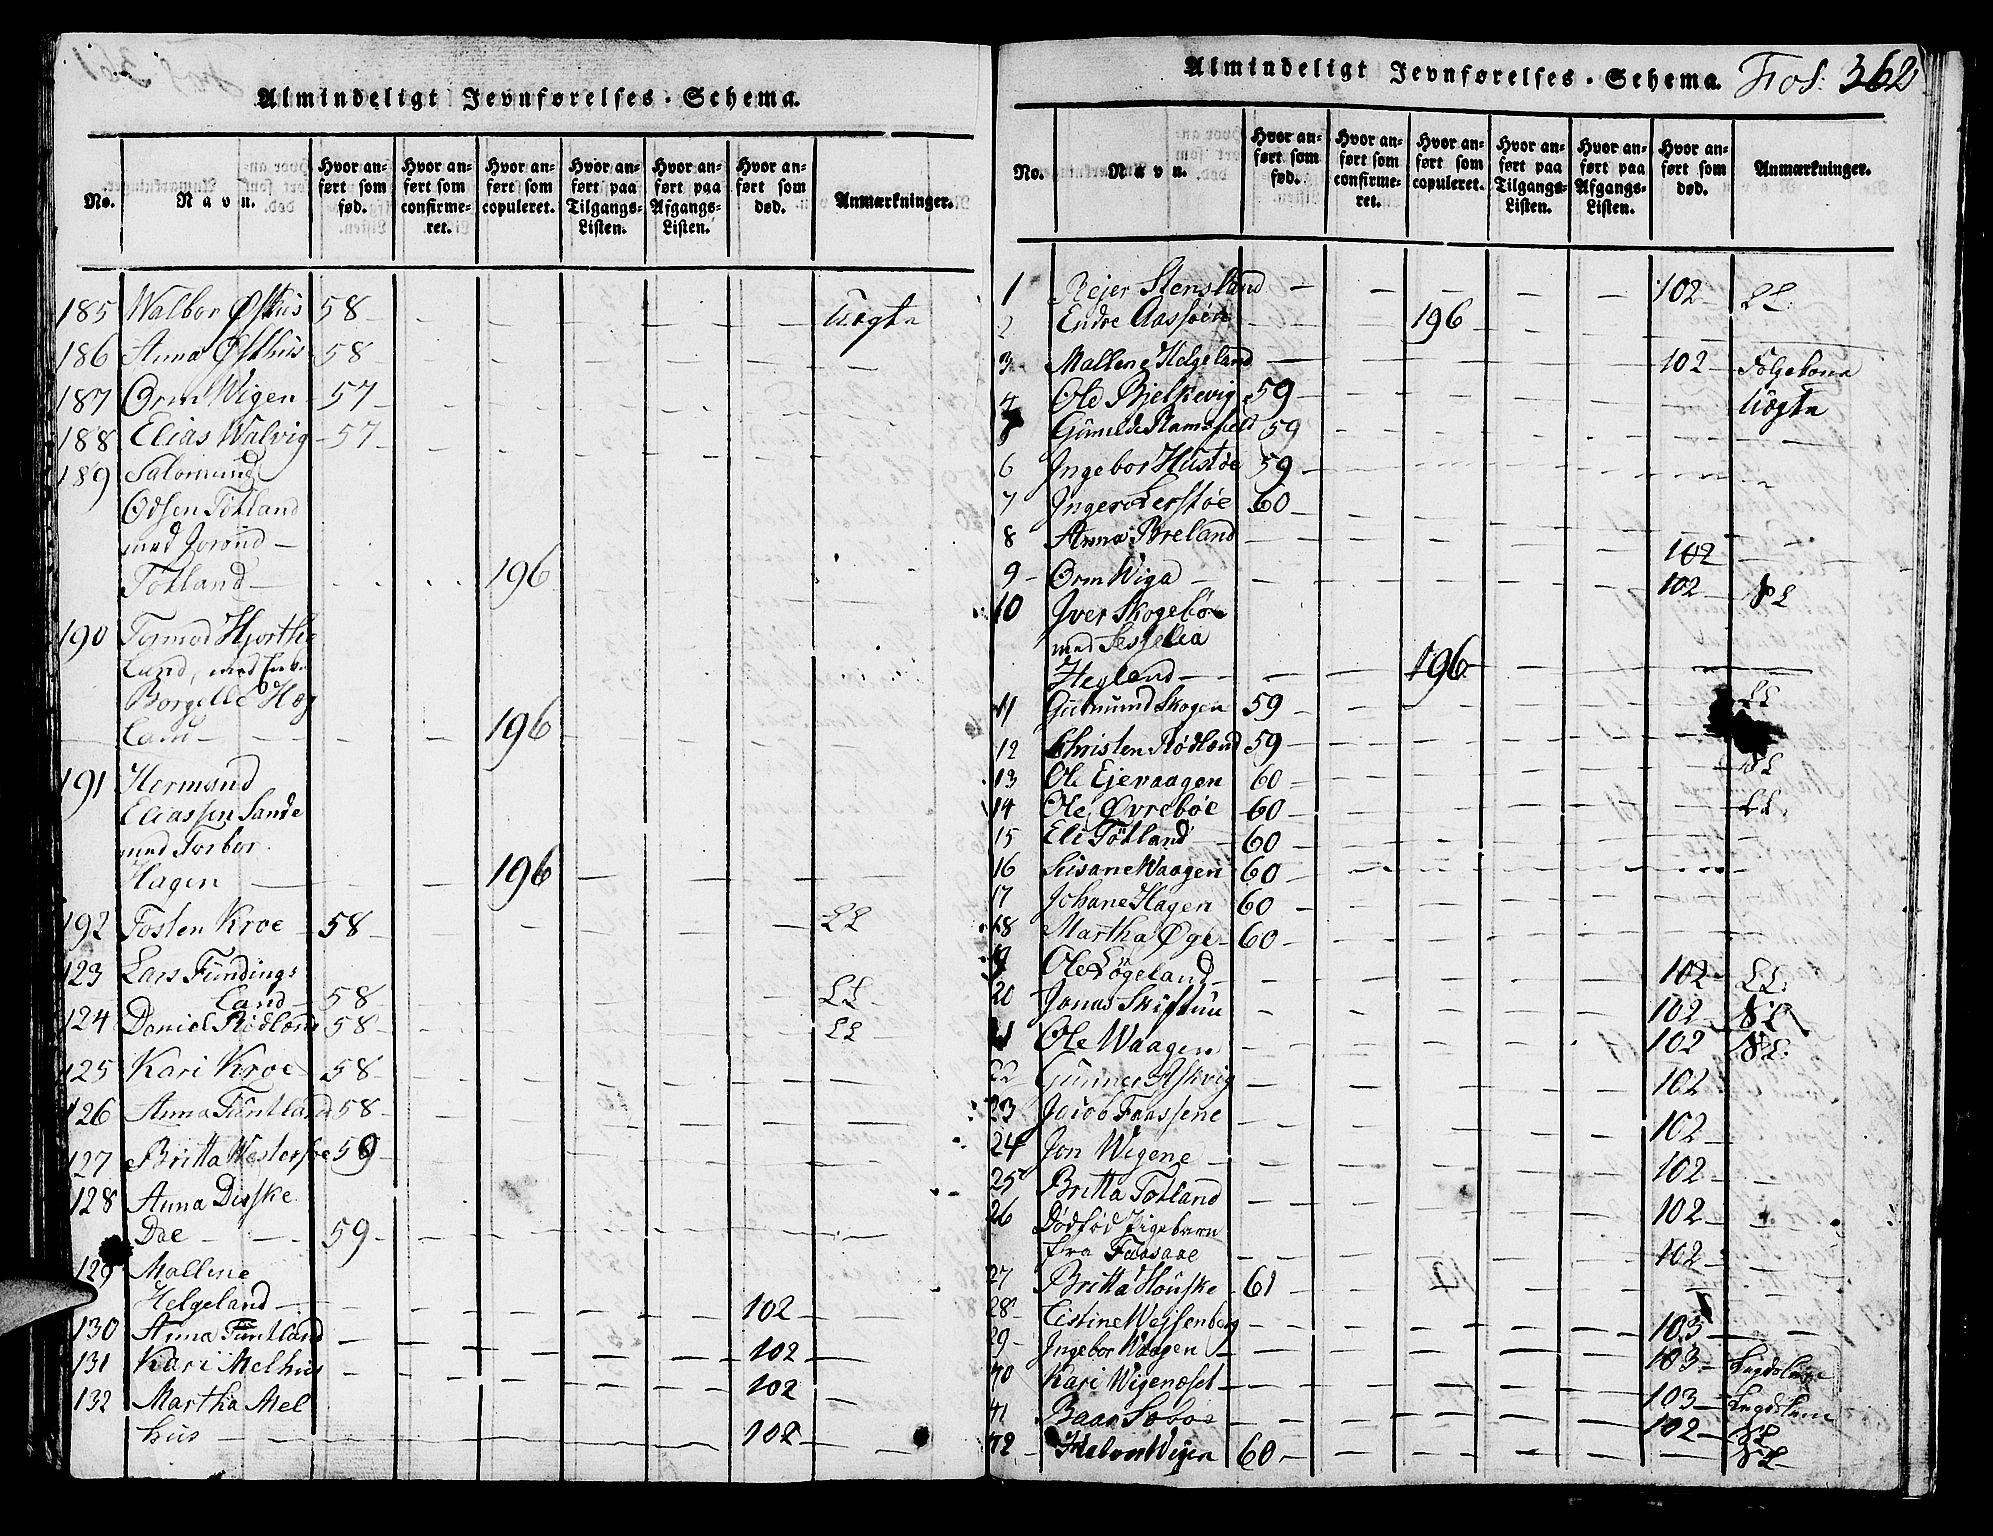 Almindeligt Jevnførelses-Schema.
No. Navn. Hvor anført som fød. Hvor anført som confirmeret. Hvor anført som copuleret. Hvor anført paa Tilgangs-Listen. Hvor anført paa Afgangs-Listen. Hvor anført som død. Anmærkninger.
185 Walbor Østhus 58 Uægte
186 Anna Østhus 58
187 Orm Wigen 57
188 Elias Walvig 57
189 Salomund
Odsen Totland
med Jorond
Totland 196
190 Tormod Hjorthe
land, med
Borgelle Høg
land 196
191 Hermond
Eliassen Sande
med Torbor
Hagen 196
192 Tosten Kroe 58 LL
123 Lars Fündings
land 58 LL
124 Daniel Rødland 58 LL
125 Kari Kroe 58
126 Anna Füntland 58
127 Britta Westersøe 59
128 Anna Diske
Dae 59
129 Mallene
Helgeland 102
130 Anna Füntland 102
131 Kari Melhus 102
132 Martha Mel
hus 102
Almindeligt Jevnførelses-Schema. Fol: 362
No. Navn. Hvor anført som fød. Hvor anført som confirmeret. Hvor anført som copuleret. Hvor anført paa Tilgangs-Listen. Hvor anført paa Afgangs-Listen. Hvor anført som død. Anmærkninger.
1 Rejer Stensland 102 LL.
2 Endre Aassøen 196
3 Mallene Helgeland 102 Følgekone
4 Ole Bjelkevig 59 Uægte
5 Gunilde Ramsfield 59
6 Ingebor Hustøe 59
7 Inger Lerstøe 60
8 Anna Breland 102
9 Orm Wiga 102 SL
10 Iver Skogebøe
med Sesselia
Hegland 196
11 Gudmund Skogen 59 LL
12 Christen Rødland 59
13 Ole Ejevaagen 60 SL
14 Ole Øvrebøe 60 LL.
15 Eli Totland 60
16 Susane Waagen 60
17 Johane Hagen 60
18 Martha Øge 60
19 Ole Løgeland 102 LL.
20 Jonas Skiftun 102 SL
21 Ole Waagen 102 SL.
22 Gunner Askvig 102
23 Jacob Faassene 102
24 Jon Wigene 102
25 Britta Totland 102
26 Dødfød Pigebarn
fra Faasaae 102
27 Britta Houske 61
28 Cistine Wejsenberg 103
29 Ingebor Waagen 103
40 Kari Wigenæset 103
41 Baar Soboe 102 SL
42 Halvor Wigen 60 SL